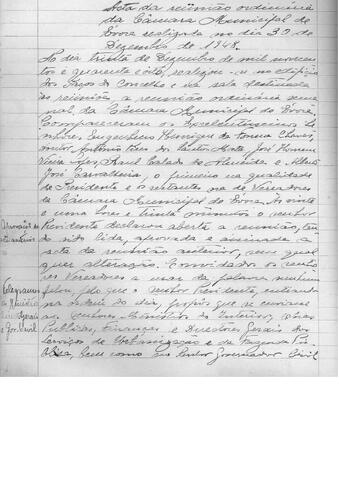 Acta da reünião ordinária
da Câmara Municipal de
Évora realizada no dia 30 de
Dezembro de 1948.
Ao dia trinta de Dezembro de mil novecen
tos e quarenta e oito, realizou-se no edifício
dos Paços do Concelho e na sala destinada
às reüniões a reünião ordinária sema
nal da Câmara Municipal de Évora.
Compareceram os Excelentíssimos Se
nhores, Henrique da Fonseca Chaves,
António dos Santos
Vieira Lopes, Raul Calado de Almeida e Alberto
José Carvalheira, o primeiro na qualidade
de Presidente e os restantes na de Vereadores
da Câmara Municipal de Évora. Às vinte
e uma horas e trinta minutos o senhor
Presidente declarou aberta a reünião, ten
do sido lida, aprovada e assinada a
acta da reünião anterior, sem qual
quer alteração. Convidados os senho
res Vereadores a usar da palavra nenhum
falou pelo que o senhor Presidente, entrando
na ordem do dia, propôs que se enviassem
aos senhores Ministros do Interior, Obras
Públicas, Finanças e Directores Gerais dos
Serviços de Urbanização e da Fazenda Pú
blica, bem como ao Senhor Governador Civil
Aprovação da
acta anterior
Telegramas
ao Ministro
Gov. Civil